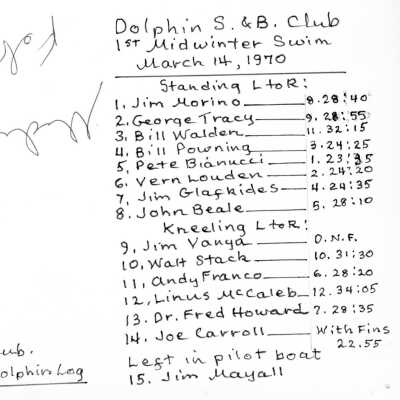 Dolphin S. & B. Club
1ST Midwinter Swim
March 14, 1970
Standing L to R:
1, Jim Morino 8. 28:40
2. George Tracy 9. 28:55
3. Bill Walden 11. 32:15
4. Bill Powning 3. 24:25
5, Pete Bianucci 1. 23:35
6. Vern Louden 2. 24:20
7, Jim Glafkides 4. 24:35
8. John Beale 5. 28:10
Kneeling L to R:
9, Jim Vanya D.N.F.
10, Walt Stack 10. 31:30
11, Andy Franco 6. 28:20
12, Linus McCaleb 12. 34:05
13. Dr. Fred Howard 7. 28:35
14. Joe Carroll With Fins
22.55
Left in pilot boat
15. Jim Mayall
ub.
olphin Log